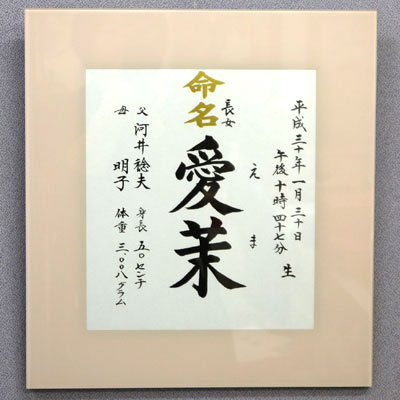 平成三十年一月三十日
午後十時四十七分 生
えま
長女
命名
愛茉
父 河井稔夫
母 明子
身長 五〇センチ
体重 三、〇〇八グラム